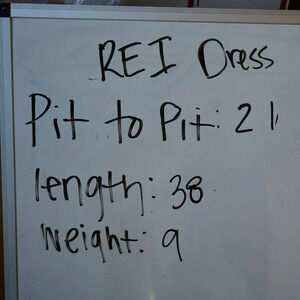 REI Dress
Pit to Pit: 21
length: 38
weight: 9